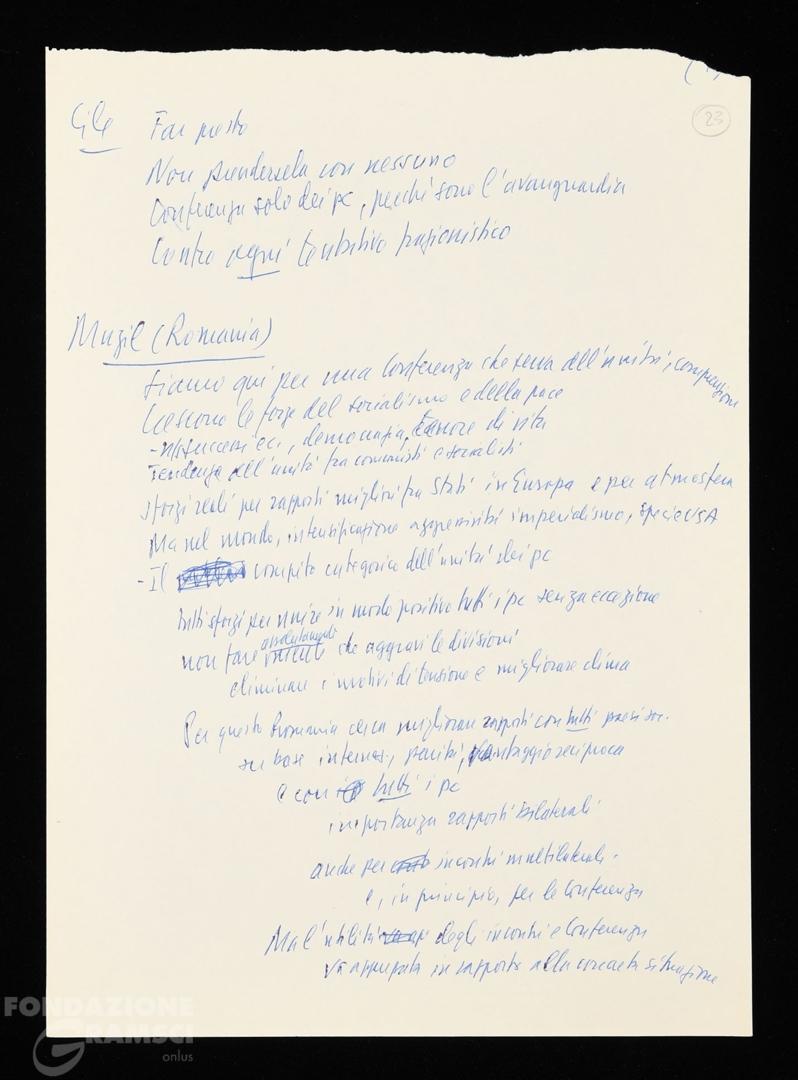 23
Cile Far presto
Non prendersela con nessuno
Conferenza solo dei pc, perché sono l'avanguardia
Contro ogni tentativo frazionistico
Muzil (Romania)
Siamo qui per una Conferenza che serva all'unità, comprensione
Crescono le forze del socialismo e della pace
- successi ec., democrazia, tenore di vita
Tendenza all'unità tra comunisti e socialisti
sforzi reali per rapporti migliori fra Stati in Europa e per atmosfera
Ma nel mondo, intensificazione aggressività imperialismo, specie USA
- Il compito categorico dell'unità dei pc
tutti sforzi per unire in modo positivo tutti i pc senza eccezione
assolutamente
non fare niente che aggravi le divisioni
eliminare i motivi di tensione e migliorare clima
Per questo Romania cerca migliorare rapporti con tutti paesi soc.
su base internaz., parità, vantaggio reciproco
e con tutti i pc
importanza rapporti bilaterali
anche per incontri multilaterali.
e, in principio, per le Conferenze
Ma l'utilità degli incontri e Conferenze
va appurata in rapporto alla concreta situazione
FONDAZIONE
GRAMSCI
onlus